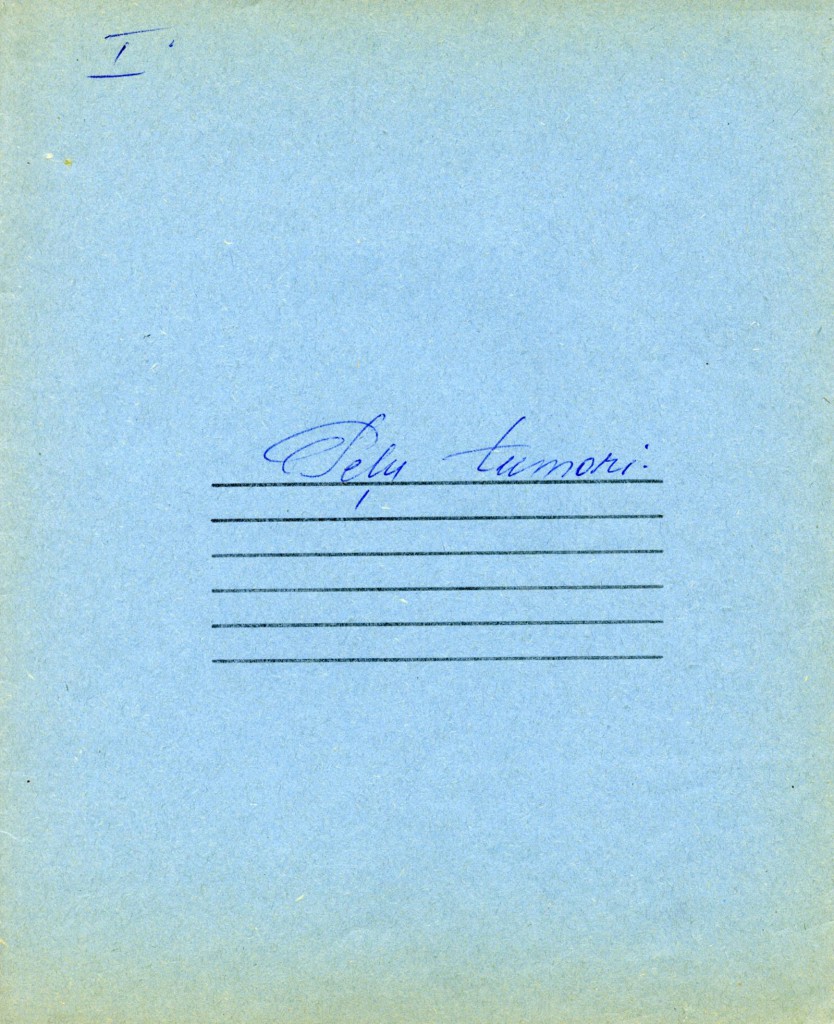 I.
Peļu tumori.